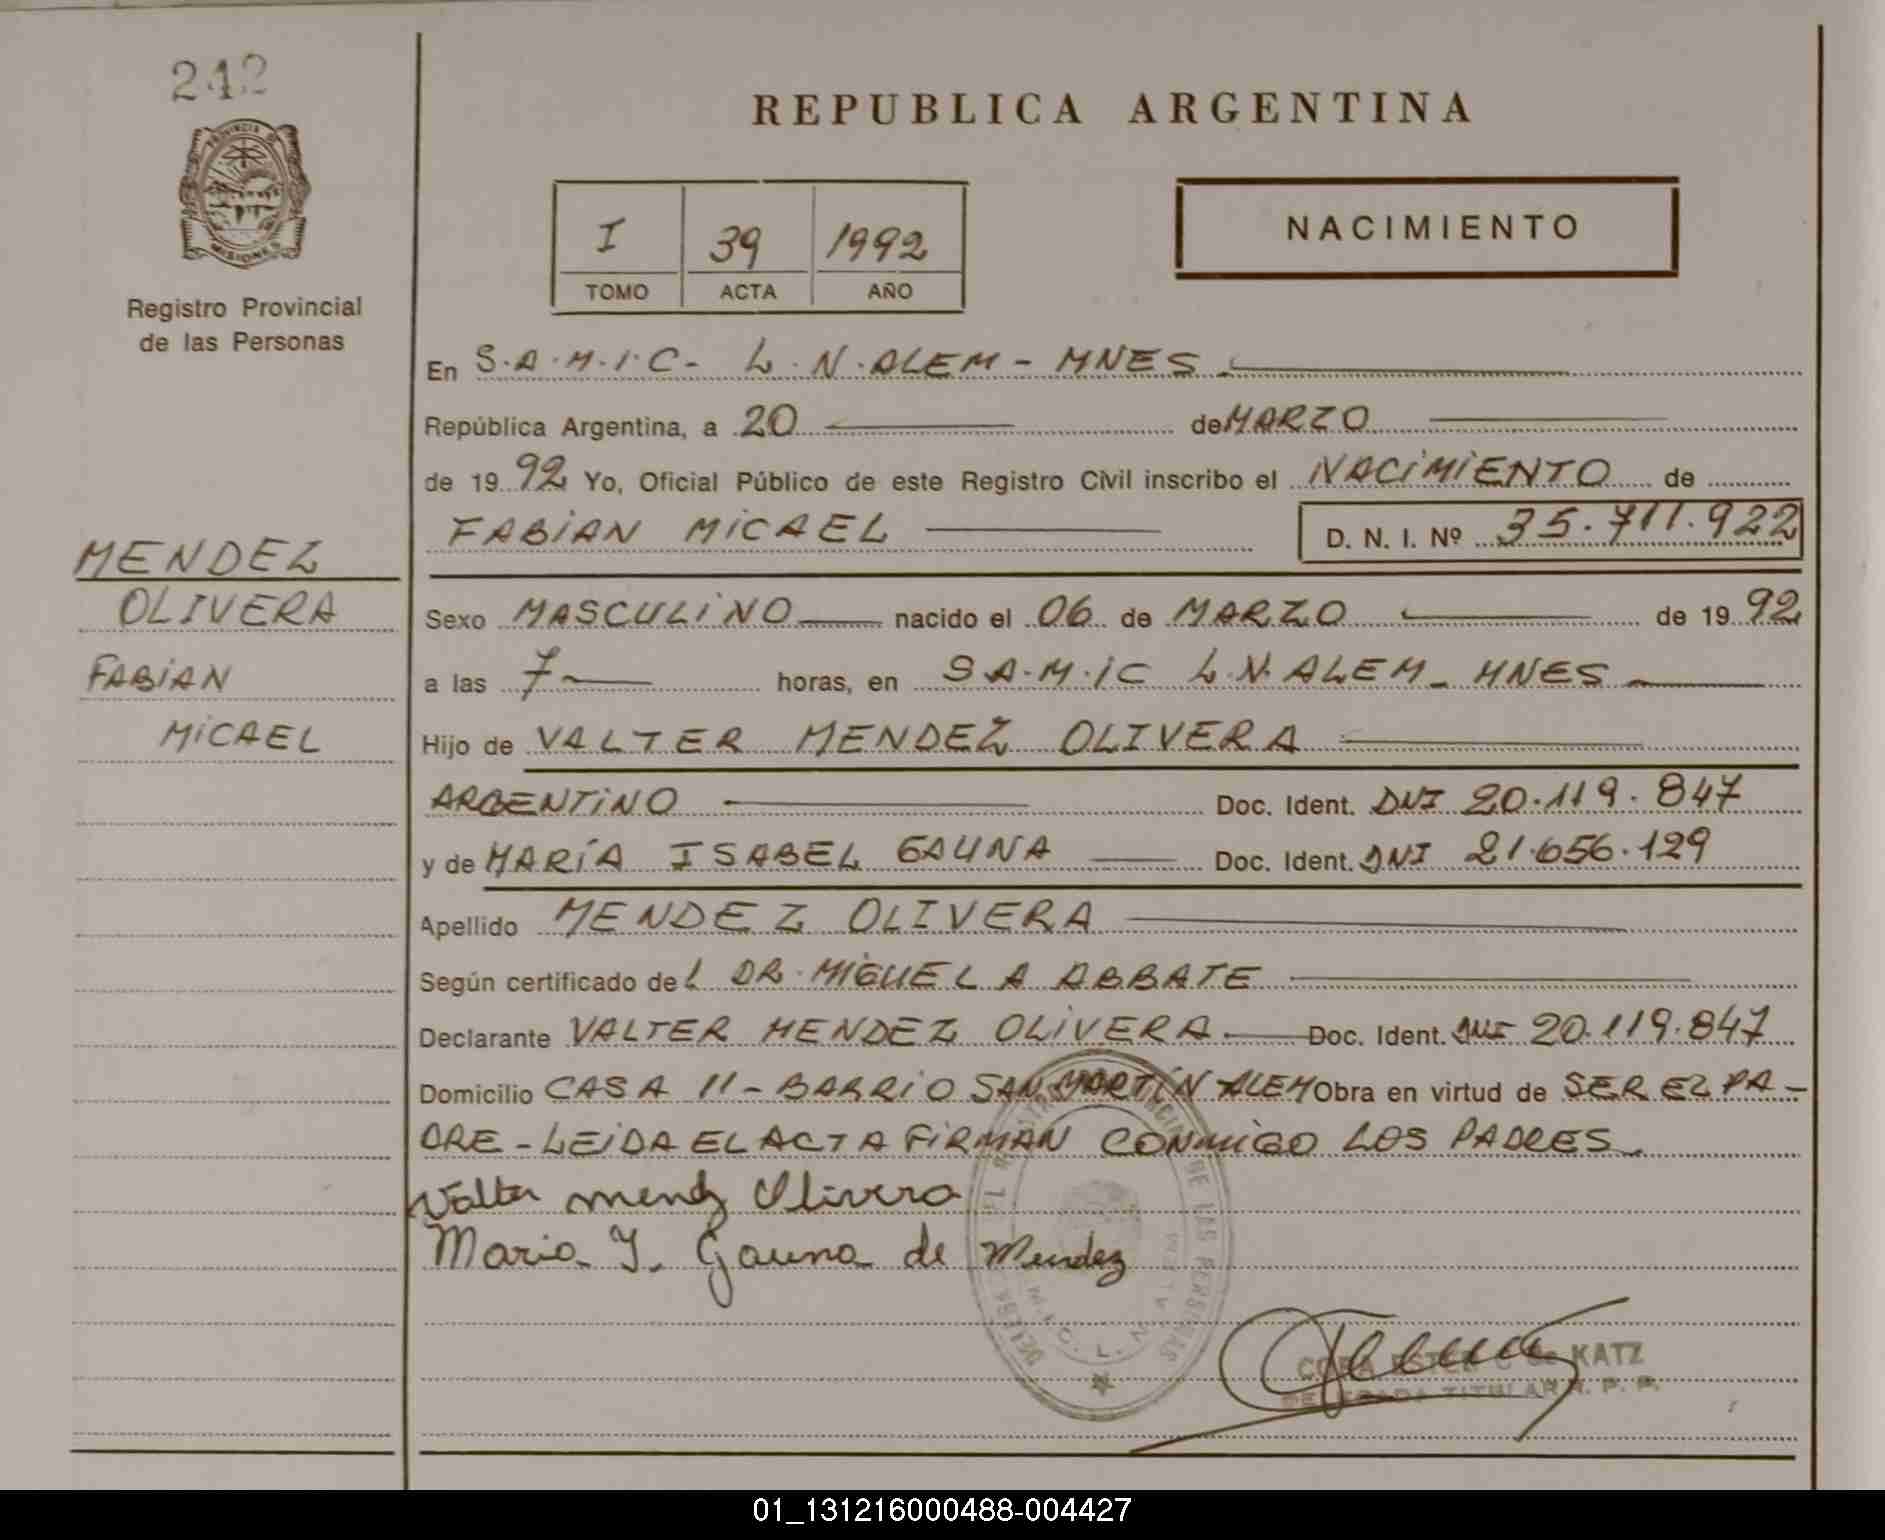 242
PROVINCIA DE
MISIONES
Registro Provincial
de las Personas
MENDEZ
OLIVERA
FABIAN
MICAEL
REPUBLICA ARGENTINA
I 39 1992
TOMO ACTA AÑO
NACIMIENTO
En S.A.M.I.C- L.N.ALEM - MNES
República Argentina, a 20 de MARZO
de 1992 Yo, Oficial Público de este Registro Civil inscribo el NACIMIENTO de
FABIAN MICAEL D. N. I. Nº 35.711.922
Sexo MASCULINO nacido el 06 de MARZO de 1992
a las 7 horas, en S.A.M.IC L.N.ALEM - MNES
Hijo de VALTER MENDEZ OLIVERA
ARGENTINO Doc. Ident. DNI 20.119.847
y de MARÍA ISABEL GAUNA Doc. Ident. DNI 21.656.129
Apellido MENDEZ OLIVERA
Según certificado del DR. MIGUEL A ABBATE
Declarante VALTER MENDEZ OLIVERA Doc. Ident. DNI 20.119.847
Domicilio CASA 11 - BARRIO SAN MARTÍN - ALEM Obra en virtud de SER EL PA-
DRE - LEIDA EL ACTA FIRMAN CONMIGO LOS PADRES.
Valter mendz Olivera
Maria I. Gauna de Mendez
KATZ
TITULAR R. P. P.
01_131216000488-004427